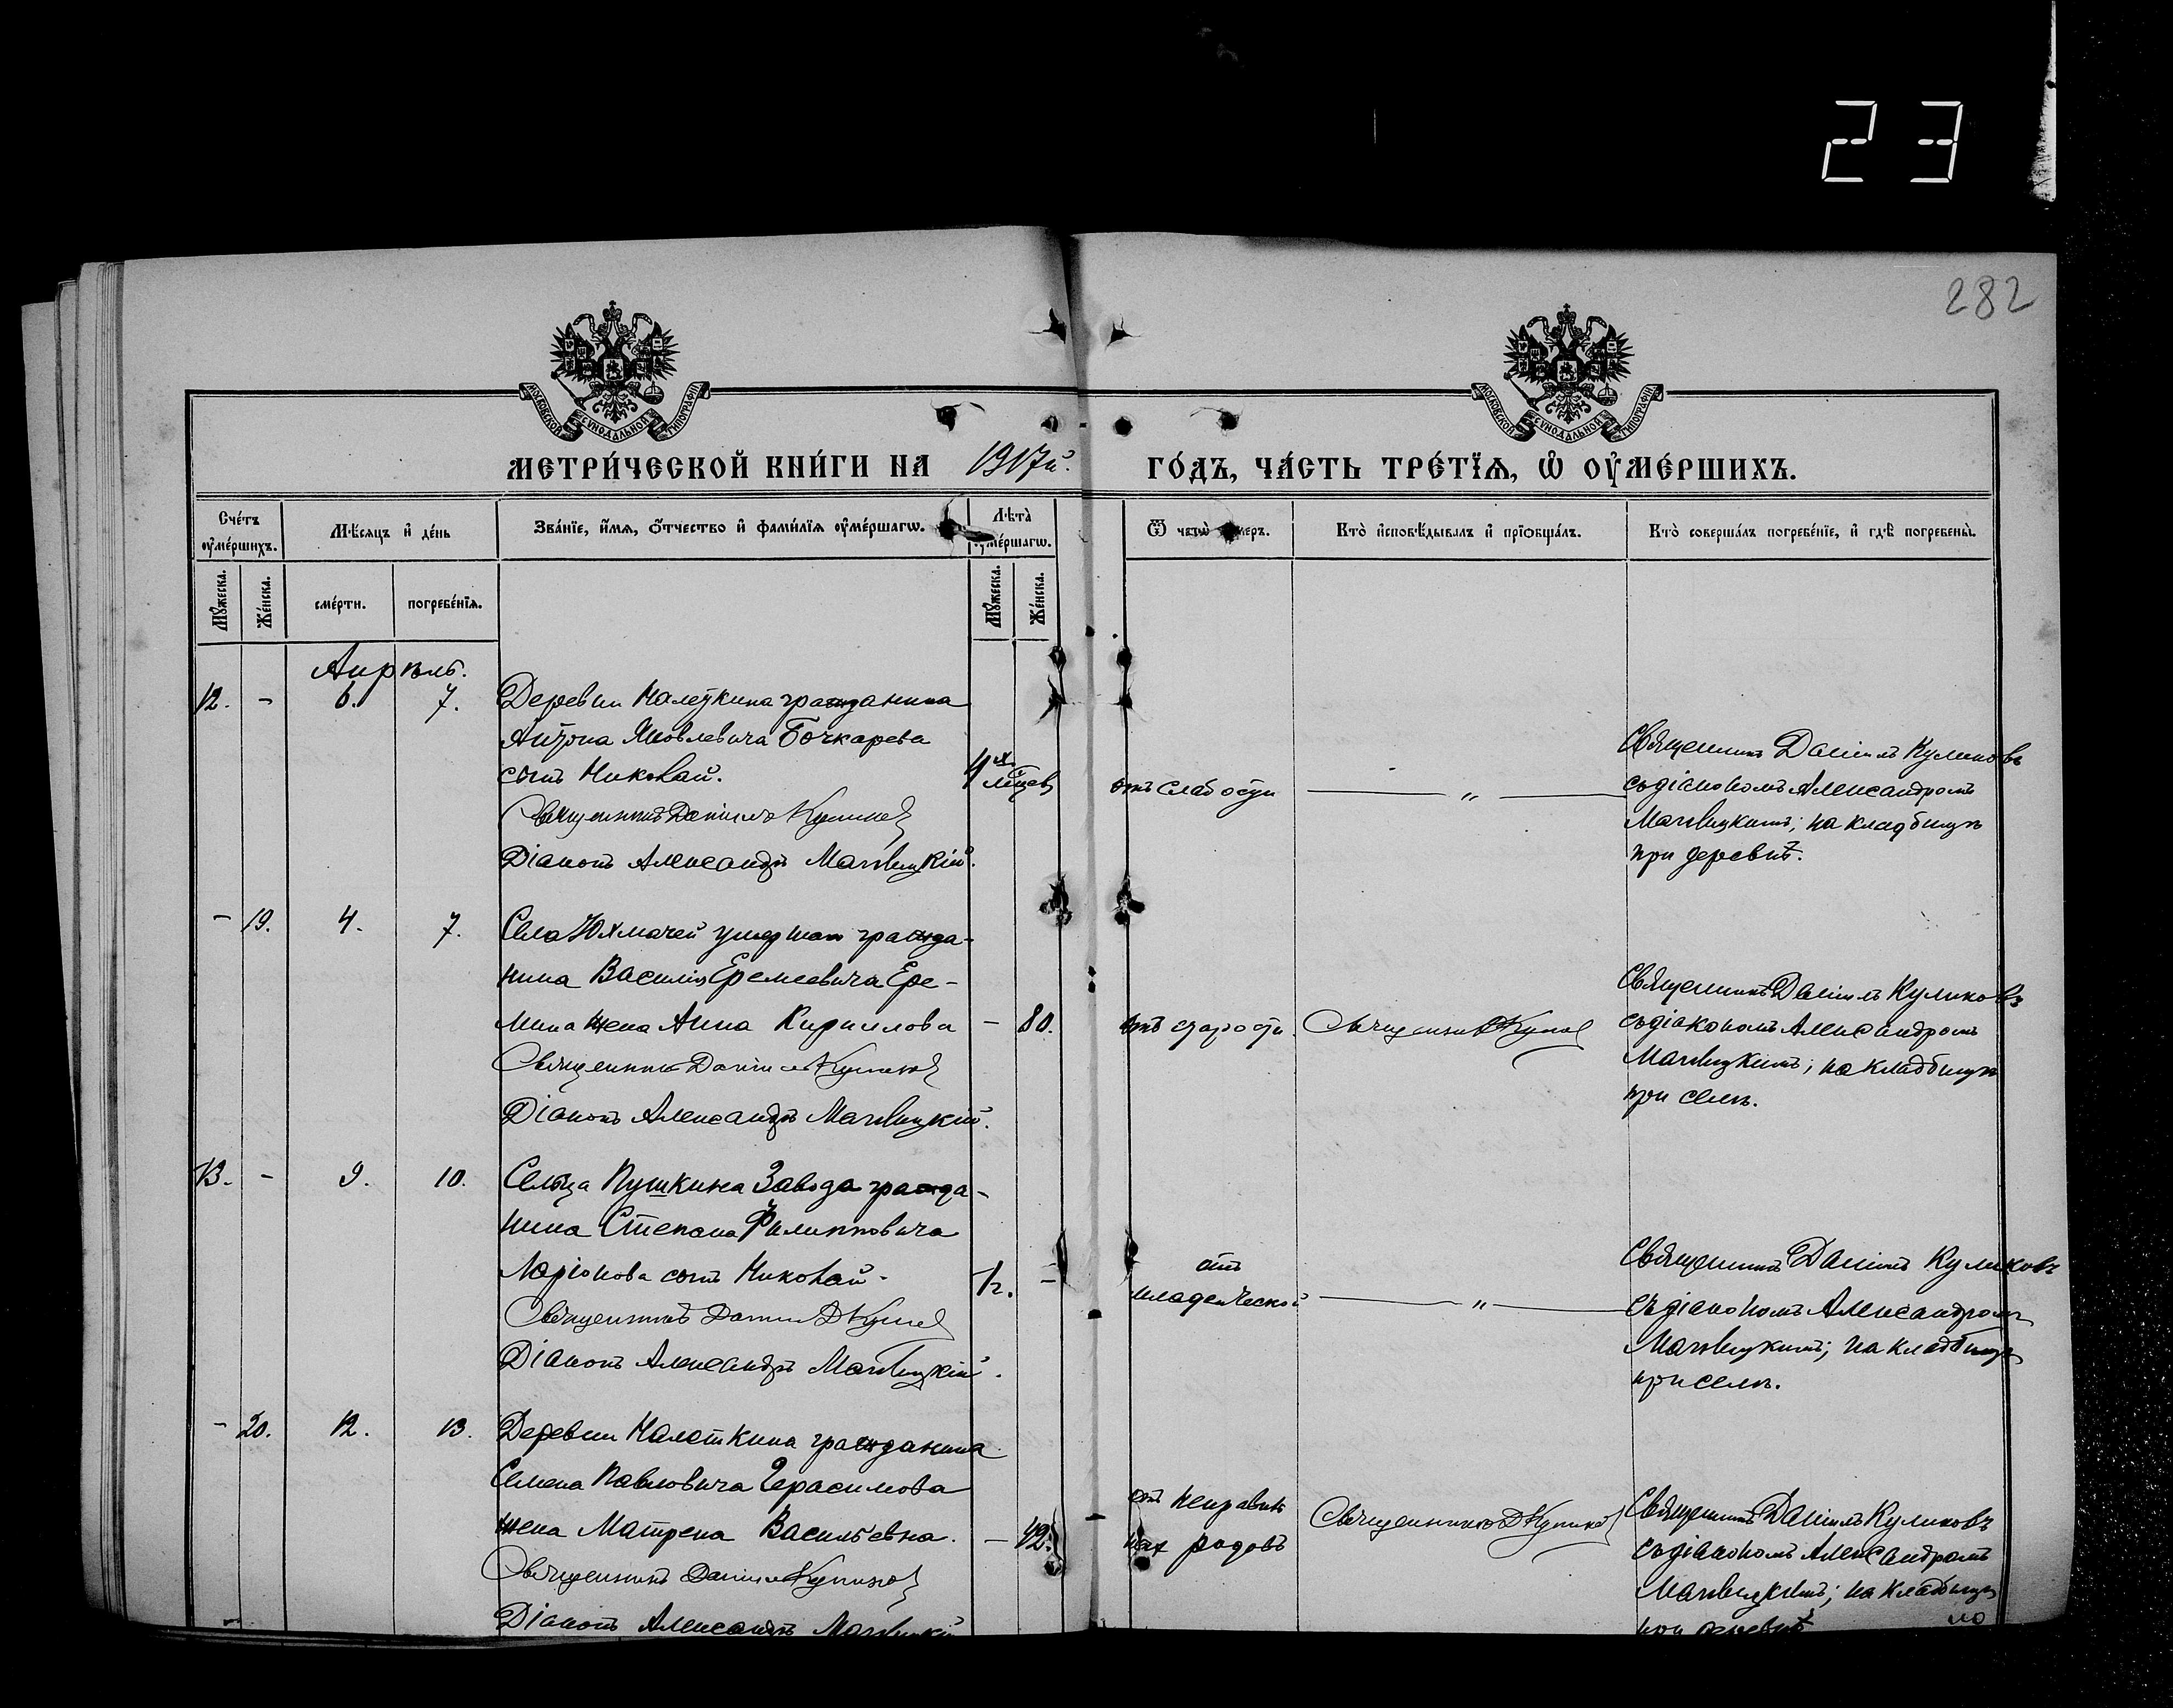 23
282
МОСКОВСКОЙ СУНОДАЛЬНОЙ ТИПОГРАФІИ
МОСКОВСКОЙ СУНОДАЛЬНОЙ ТИПОГРАФІИ
МЕТРИ́ЧЕСКОЙ КНИ́ГИ НА 1917й. ГО́ДЪ, ЧА́СТЬ ТРЕ́ТЇѦ, Ѡ҆ ОУ҆МЕ́РШИХЪ.
Сче́тъ оу҆ме́ршихъ.
Мѣ́сяцъ и҆ де́нь
Зва́нїе, и҆́мѧ, ѻ҆́тчество и҆ фами́лїѧ оу҆ме́ршагѡ.
Лѣ́та оу҆ме́ршагѡ.
Ѿ чегѡ̀ оу҆́меръ.
Кто̀ и҆сповѣ́дывалъ и҆ прїѡбща́лъ.
Кто̀ соверша́лъ погребе́нїе, и҆ гдѣ̀ погребены̀.
Мꙋ́жеска.
Же́нска.
сме́рти.
погребе́нїѧ.
Мꙋ́жеска.
Же́нска.
Апрѣль.
12. - 6. 7.
Деревни Налеткина гражданина
Антона Яковлевича Бочкарева
сынъ Николай.
Священникъ Даніилъ Куликов
Діаконъ Александръ
4 х мѣсцев
отъ слабости
— „ —
Священникъ Даніилъ Куликовъ
съ діакономъ Александромъ
на кладбищѣ
при деревнѣ.
- 19. 4. 7.
Села Юхмачей умершаго гражда-
нина Василія Еремеевича Ере-
мина жена Анна Кириллова
Священникъ Даніилъ Куликов
Діаконъ Александръ
- 80.
отъ старости.
Священник Д Куликов
Священникъ Даніилъ Куликовъ
съ діакономъ Александромъ
на кладбищѣ
при селѣ.
13. - 9. 10.
Сельца Пушкина Завода гражда-
нина Степана Филипповича
Ларіонова сынъ Николай.
Священникъ Даніил Куликов
Діаконъ Александръ
-
отъ
младенческой
— „ —
Священникъ Даніилъ Куликовъ
съ діакономъ Александромъ
на кладбищѣ
при селѣ.
- 20. 12. 13.
Деревни Налеткина гражданина
Семена Павловича Герасимова
жена Матрена Васильевна.
Священникъ Даніилъ Куликов
Діаконъ Александръ
- 42.
отъ неправиль
ных родовъ
Священникъ Д Куликов
Священникъ Даніилъ Куликовъ
съ діакономъ Александромъ
на кладбищѣ
при деревнѣ